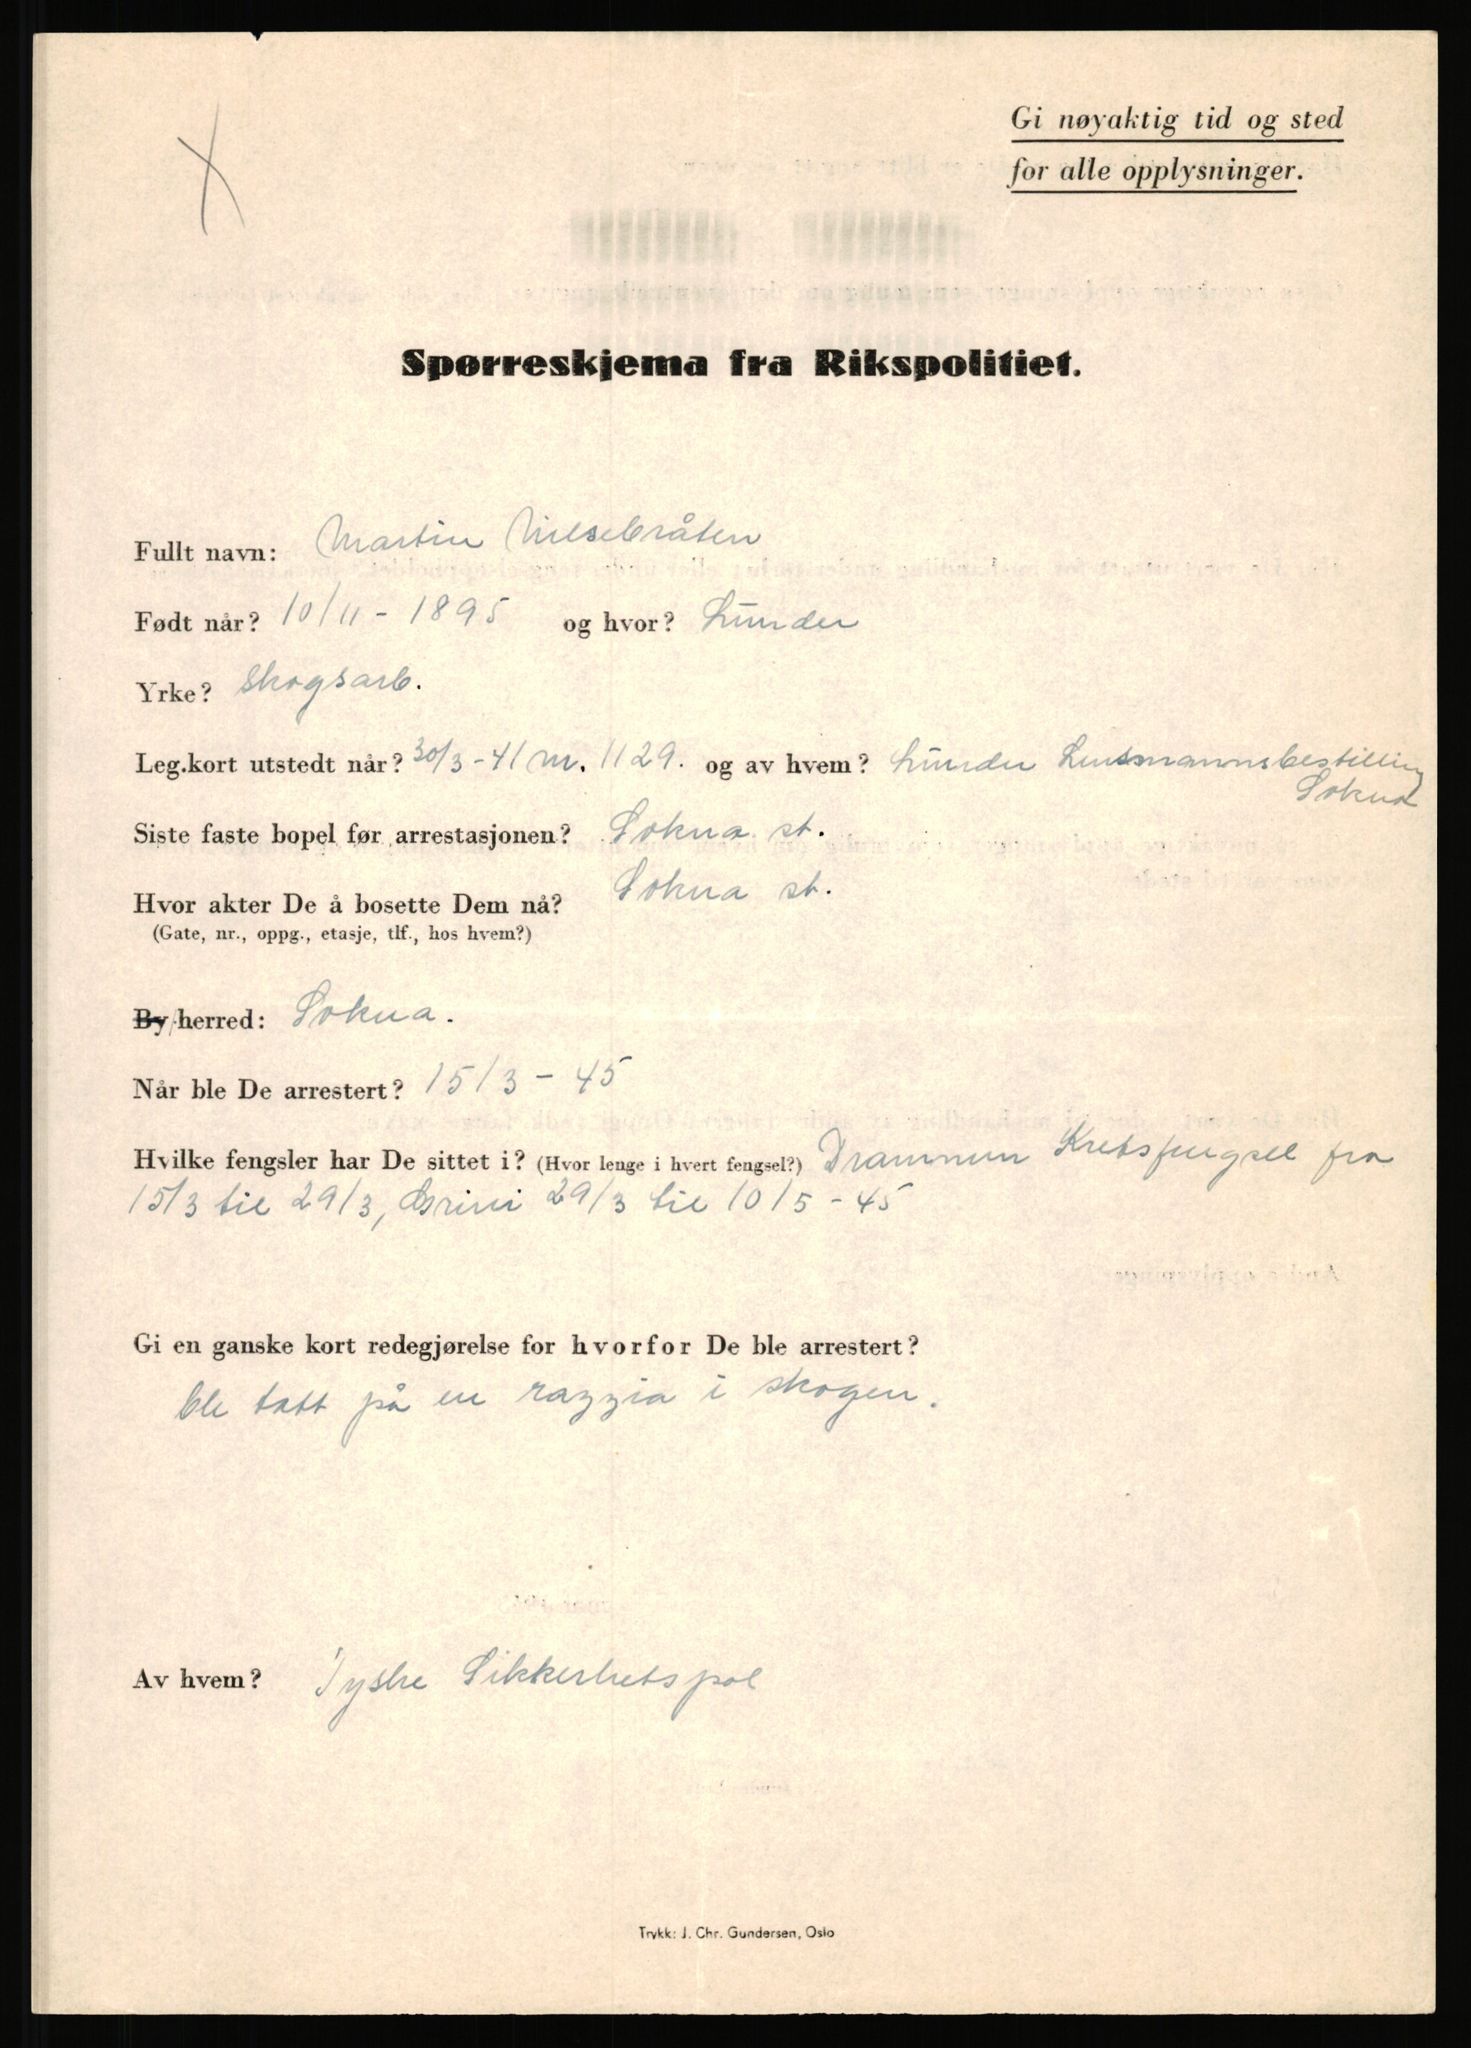 Gi nøyaktig tid og sted
for alle opplysninger.
Spørreskjema fra Rikspolitiet.
Fullt navn: Martin Nilsebråten
Født når? 10/11 - 1895 og hvor? Lunder
Yrke? Skogsarb.
Leg.kort utstedt når? 30/3 - 41 nr. 1129. og av hvem? Lunder Lensmannsbestilling
Sokna
Siste faste bopel før arrestasjonen? Sokna st.
Hvor akter De å bosette Dem nå? Sokna st.
(Gate, nr., oppg., etasje, tlf., hos hvem?)
By/herred: Sokna.
Når ble De arrestert? 15/3 - 45
Hvilke fengsler har De sittet i? (Hvor lenge i hvert fengsel?) Drammen Kretsfengsel fra
15/3 til 29/3, Grini 29/3 til 10/5 - 45
Gi en ganske kort redegjørelse for hvorfor De ble arrestert?
ble tatt på en razzia i skogen.
Av hvem? Tyske Sikkerhetspol
Trykk: J. Chr. Gundersen, Oslo